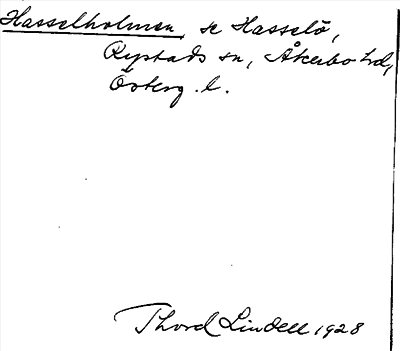 Hasselholmen, se Hasselö,
Rystads sn, Åkerbo hd,
Österg. l.
Thord Lindell 1928